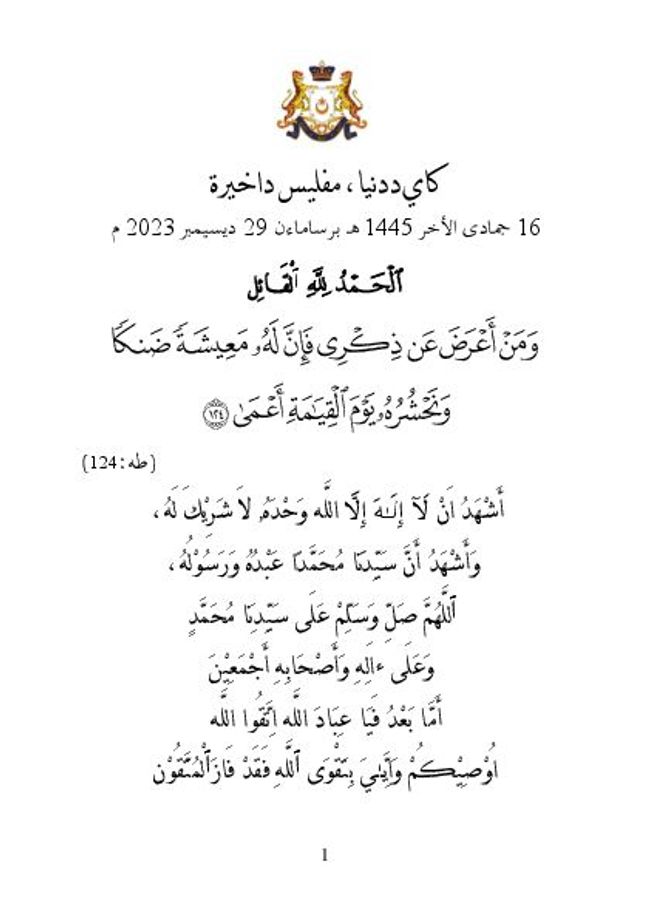 كاي ددنيا ، مفليس داخيرة
16 جمادى الأخر 1445 هـ برساماءن 29 ديسيمبر 2023 م
ٱلْحَمْدُ لِلَّهِ ٱلْقَائِلِ
وَمَنْ أَعْرَضَ عَن ذِكْرِى فَإِنَّ لَهُۥ مَعِيشَةً ضَنكًا
وَنَحْشُرُهُۥ يَوْمَ ٱلْقِيَٰمَةِ أَعْمَىٰ ١٢٤
(طه : 124)
أَشْهَدُ اَنْ لَآ إِلَٰهَ إِلَّا اللَّه وَحْدَهُۥ لاَ شَرِيْكَ لَهُ ،
وَأَشْهَدُ أَنَّ سَيِّدِنَا مُحَمَّدًا عَبْدُهُ وَرَسُوْلُهُ ،
اَللَّهُمَّ صَلِّ وَسَلِّمْ عَلَى سَيِّدِنَا مُحَمَّدٍ
وَعَلَى ءَالِهِ وَأَصْحَابِهِ أَجْمَعِيْنَ
أَمَّا بَعْدُ فَيَا عِبَادَ اللَّه اِتَّقُوا اللَّه
اُوْصِيْكُمْ وَاِيَّايَ بِتَقْوَى ٱللَّهِ فَقَدْ فَازَ الْمُتَّقُوْن
1